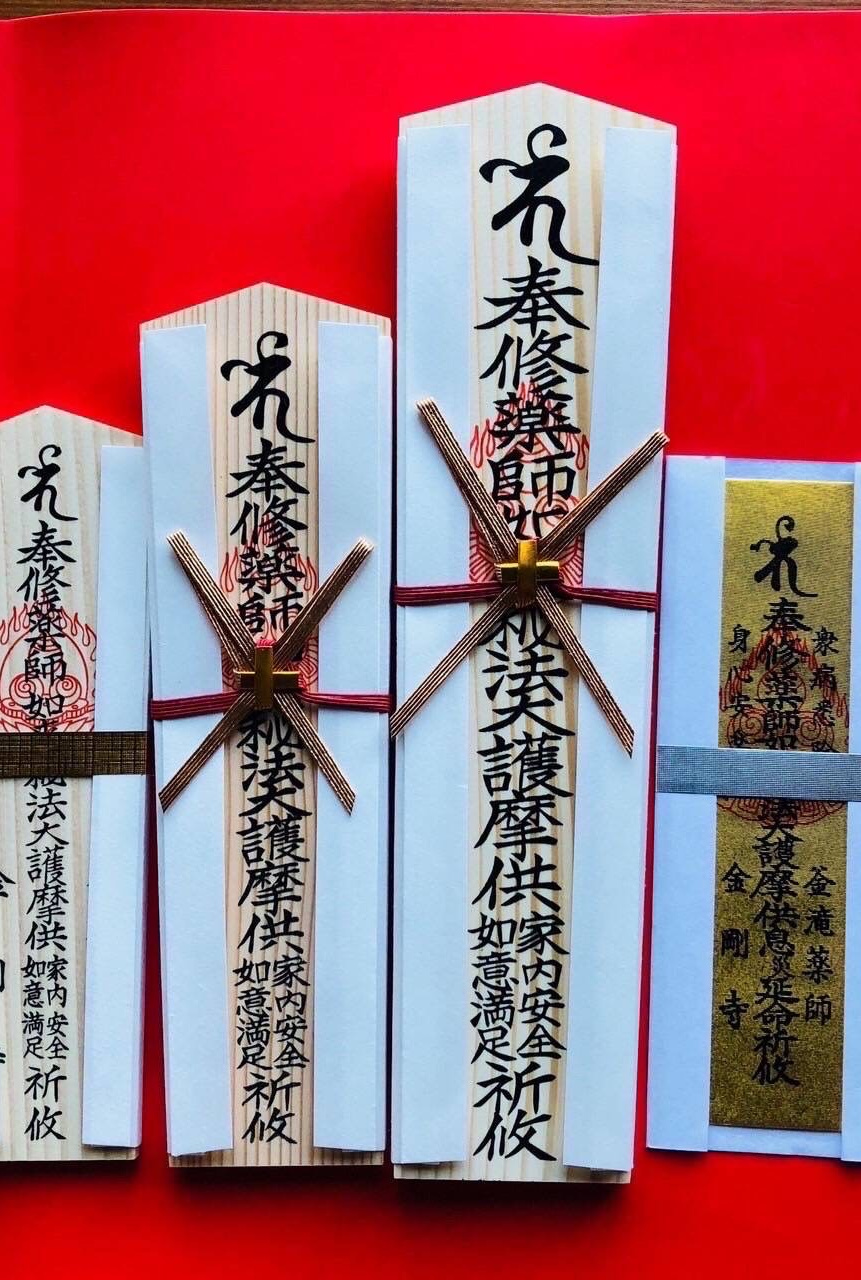 奉修薬師如
法大護摩供
家内安全
如意満足
祈攸
奉修薬師
法大護摩供
家内安全
如意満足
祈攸
奉修薬師
法大護摩供
家内安全
如意満足
祈攸
衆病悉除
釜滝薬師
奉修薬師如
大護摩供息災延命祈攸
身心安
金剛寺